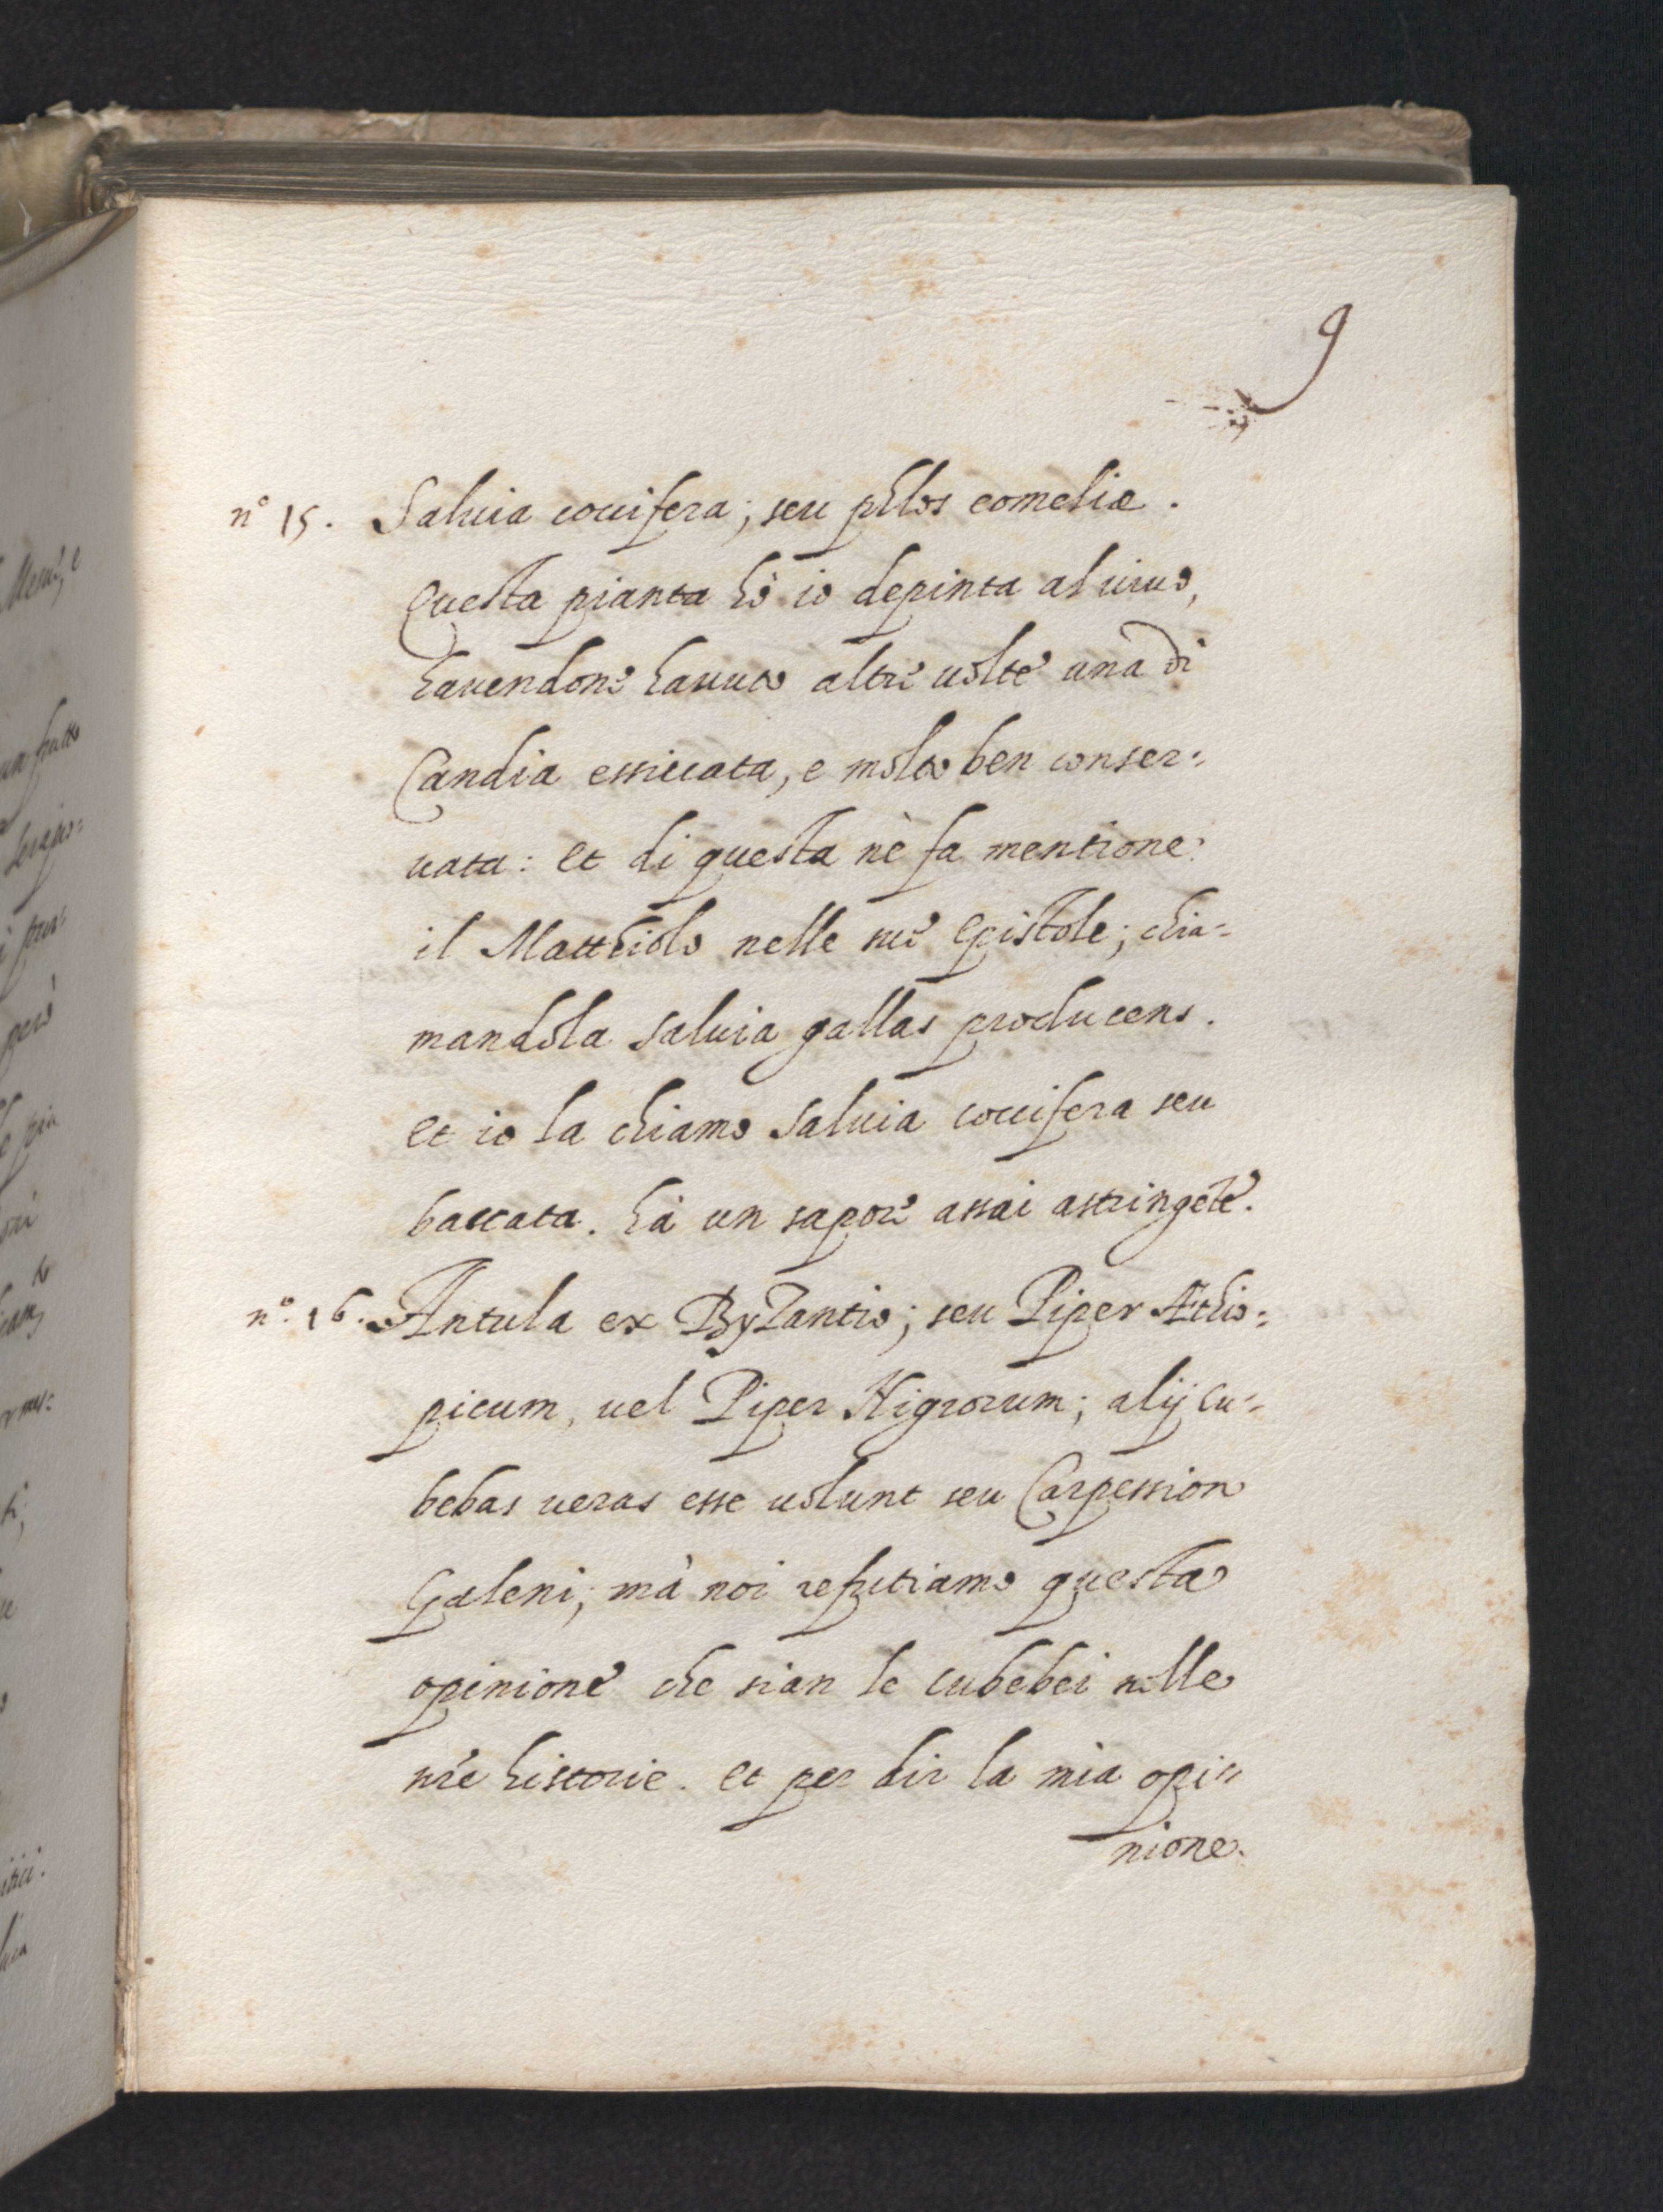 9
n° 15. Saluia coccifera; seu phlos comeliæ.
Questa pianta hò io depinta al uiuo,
hauendone hauuto altre uolte una di
Candia essiccata, e molto ben conser:
uata: et di questa nè fa mentione
il Matthiolo nelle sue Epistole; chia-
mandola saluia gallas producens.
et io la chiamo saluia coccifera seu
baccata. hà un sapore assai astringēte.
n°. 16. Antula ex Byzantio; seu Piper Æthio:
picum, uel Piper Nigrorum; alij Cu-
bebas ueras esse uolunt seu Carpession
Galeni; mà noi refutiamo questa
opinione che sian le cubebei nelle
nr̃e historie. et per dir la mia opi-
nione